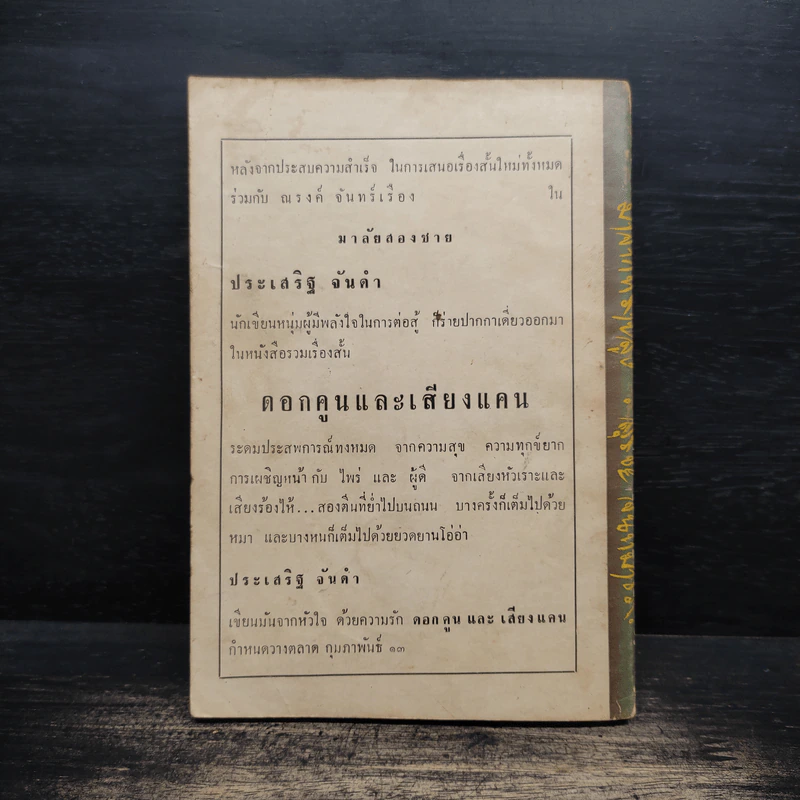 หลังจากประสบความสำเร็จ ในการเสนอเรื่องสั้นใหม่ทั้งหมด
ร่วมกับ ณรงค์ จันทร์เรือง ใน
มาลัยสองชาย
ประเสริฐ จันดำ
นักเขียนหนุ่มผู้มีพลังใจในการต่อสู้ ก็ร่ายปากกาเดี่ยวออกมา
ในหนังสือรวมเรื่องสั้น
ดอกคูนและเสียงแคน
ระดมประสพการณ์ทงหมด จากความสุข ความทุกข์ยาก
การเผชิญหน้ากับ ไพร่ และ ผู้ดี จากเสียงหัวเราะและ
เสียงร้องไห้...สองตีนที่ย่ำไปบนถนน บางครั้งก็เต็มไปด้วย
หมา และบางหนก็เต็มไปด้วยยวดยานโอ่อ่า
ประเสริฐ จันดำ
เขียนมันจากหัวใจ ด้วยความรัก ดอกคูน และ เสียงแคน
กำหนดวางตลาด กุมภาพันธ์ ๑๓